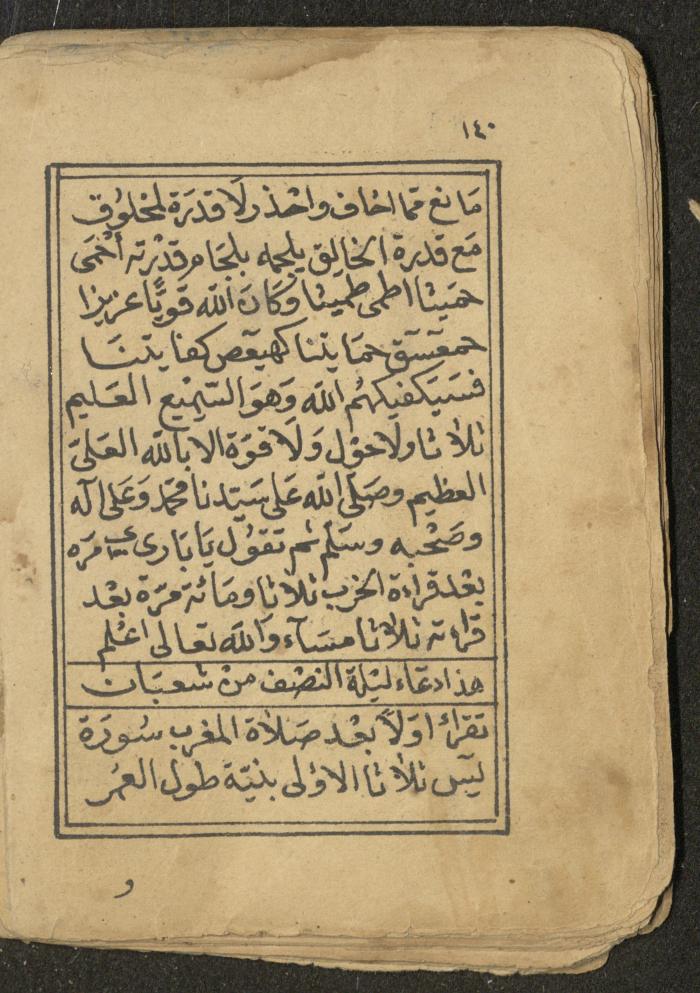 ١٤٠
مَانع مما اخاف واحْذر لَا قدرَة لمخْلوُق
مَع قدرة الخَالِق يلجمه بلجَام قدْرته أَحْمَى
حمَيْثا اطمى طميثا وَكَانَ الله قويًّا عزيزا
حمعٓسٓقٓ حمَايتنا كهيعٓصٓ كفايتنَا
فسَيَكفيكهُم الله وَهوَ السَّمِيْع العَليم
ثلاثا ولَا حوْل وَلَا قوّة الا بالله العَليّ
العظيم وصَلّى الله عَلى سَيّدنا محمّد وَعَلى اله
وصَحْبه وسَلّم ثم تقوُل يَا بَارى مرَه
بعْد قراءة الحزب ثلاثا ومَائة مرّة بعْد
قراءته ثلاثا مسَآء وَالله تعَالى اعْلم
هذا دعَاء ليْلة النصْف منْ شعبَان
تقرأ اوّلاً بعْد صَلاة المغرب سُورَة
يسٓ ثلاثا الاوْلى بنيّة طوْل العمُر
و